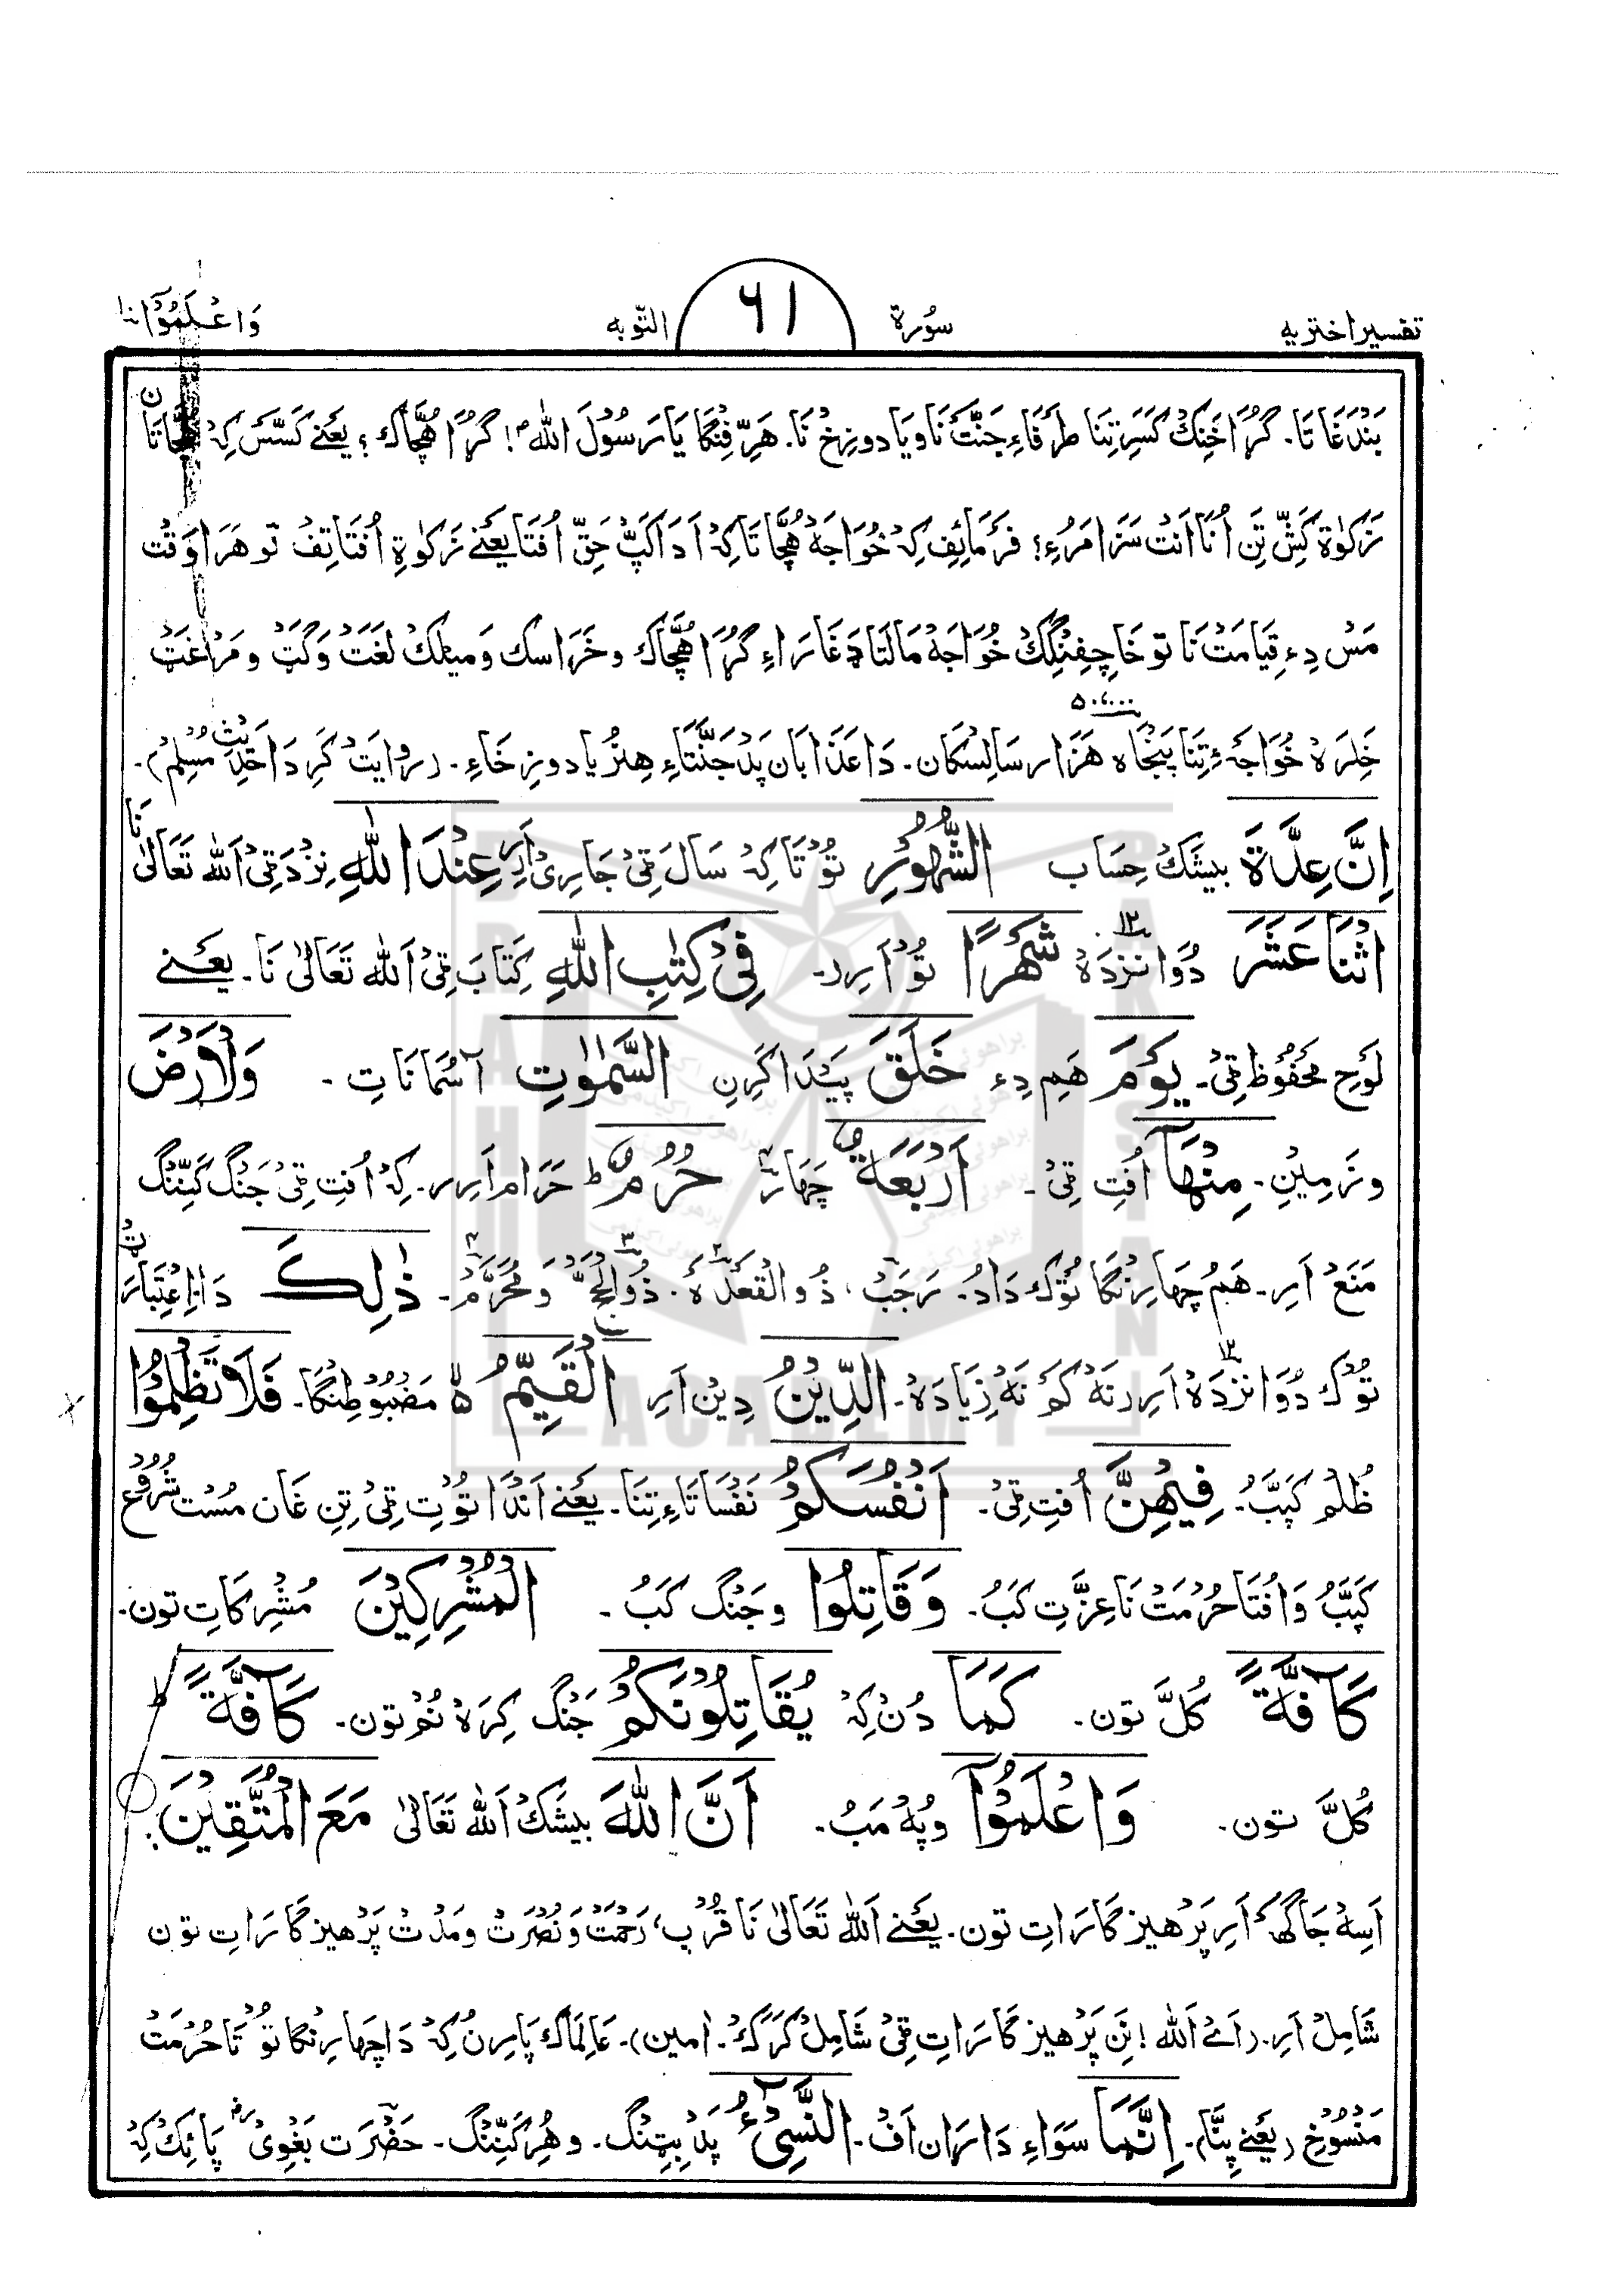 تفسیر اختریه سُورة ٦١ التّوبه وَاعْلَمُوْٓا ١٠
بَنْدَغَاتَا۔ گُرَا خَنِکْ کَسَرِ تِنَا طَرَفَاءِ جَنَّتْ نَا وَ یَا دوزِخْ نَا۔ هَرِّفِنْگا یَا رَسُوْلَ اللهؐ! گُرَا هُچَّاک؟ یَعْنے کَسَّسْ کِہْ هُچَّاتَا
زَکوٰة کَشِّ تِن اُنَا اَنْتْ سَزَا مَرُءِ؟ فَرْمَائِفِ کِہْ خُوَاجَہْ هُچَّاتَا کِہْ اَدَا کَپّْ حَقِّ اُفْتَا یَعْنے زَکوٰةِ اُفْتَا تِفْ تو هَرَا وَقْت
مَسْ دِءِ قِیَامَتْ نَا تو خَاچِفِنْگِکْ خُوَاجَہْ مَالْتَا دَغَارَاءِ گُرَا هُچَّاک و خَرَاسک وَ مِیلکْ لَغَتْ وَ گَٹ و مَرْاغَٹ
٥٠٠٠٠
خَلِرَہْ خُوَاجَہءِ تِنَا پَنْجَاہ هَزَار سَالِسْکَان۔ دَا عَذَابَان پَدْ جَنَّتَاءِ هِنُرْ یَا دوزِخَاءِ۔ (رِوَایَتْ کَرِ دَا حَدِیْثِ مُسْلِمْ)۔
اِنَّ عِدَّةَ بیشَکْ حِسَاب الشُّهُوْرِ تُوْتَا کِہْ سَالَ قِیْ جَارِیْ اَرِر عِنْدَ اللّٰهِ نِزْدَ قِیْ اَللّٰه تَعَالیٰ نَا
اثْنَا عَشَرَ دُوَانْزدَہْ ١٢ شَهْرًا تُوْ اَرِر۔ فِیْ کِتٰبِ اللّٰهِ کِتَابَ قِیْ اَللّٰه تَعَالیٰ نَا۔ یَعْنے
لَوْحِ مَحْفُوْظ قِیْ۔ یَوْمَ هَمِ دِءِ خَلَقَ پَیْدَا کَرِن السَّمٰوٰتِ آسْمَانَاتِ۔ وَالْاَرْضَ
و زَمِیْنِ۔ مِنْهَآ اُفْتِ قِیْ۔ اَرْبَعَةٌ چَهَارْ ٤ حُرُمٌ ط حَرَام اَرِر۔ کِہْ اُفْتِ قِیْ جَنْگ کَنِّنْگ
مَنَعْ اَرِ۔ هَمُ چَهَارِنْگا تُوْک دَادُ۔ رَجَبْ، ذُو الْقَعْدَہ۔ ذُو الْحِجَّہ وَ مُحَرَّمْ۔ ذٰلِکَ دَا اِعْتِبَارَتْ
تُوْک دُوَانْزدَہْ ١٢ اَرِر نَہْ کَمْ نَہْ زِیَادَہ۔ الدِّیْنُ دِیْن اَرِ الْقَیِّمُ ۵ مَضْبُوْطِنْگا۔ فَلَا تَظْلِمُوْا
ظُلْم کَپَبُ۔ فِیْهِنَّ اُفْتِ قِیْ۔ اَنْفُسَکُمْ نَفْسَاتَاءِ تِنَا۔ یَعْنے اَنْدَا تُوْتِ قِیْ تِن غَان مُسْت شُرُوْع
کَپَّبُ وَ اُفْتَا حُرْمَتْ نَا عِزَّتِ کَبُ۔ وَقَاتِلُوا و جَنْگ کَبُ۔ الْمُشْرِکِیْنَ مُشْرِکَاتِ تون۔
کَآفَّةً کُلَّ تون۔ کَمَا دُنْ کِہْ یُقَاتِلُوْنَکُمْ جَنْگ کِرَہ نُمْ تون۔ کَآفَّةً ط
کُلَّ تون۔ وَاعْلَمُوْٓا وَ پُہْ مَبُ۔ اَنَّ اللّٰهَ بیشَکْ اَللّٰه تَعَالیٰ مَعَ الْمُتَّقِیْنَ
اَسِہْ جَاگَہ اَرِ پَرْهیزگَارَاتِ تون۔ یَعْنے اَللّٰه تَعَالیٰ نَا قُرْب، رَحْمَتْ وَ نُصْرَتْ و مَدَتْ پَرْهیزگَارَاتِ تون
شَامِلْ اَرِ۔ (اَے اَللّٰه! نَنِ پَرْهیزگَارَاتِ قِیْ شَامِلْ کَرَکْ۔ اٰمین)۔ عَالِمَاک پَارِرْ کِہْ دَا چَهَارِنْگا تُوْتَا حُرْمَتْ
مَنْسُوْخ (یَعْنے پِنَّا)۔ اِنَّمَا سَوَاءِ دَارَان اَفْ۔ النَّسِیْٓءُ پَدْ بِیٹِنْگ۔ و هُرْ کَنِّنْگ۔ حَضْرَت بَغْوِیْؒ پَائِکْ کِہْ